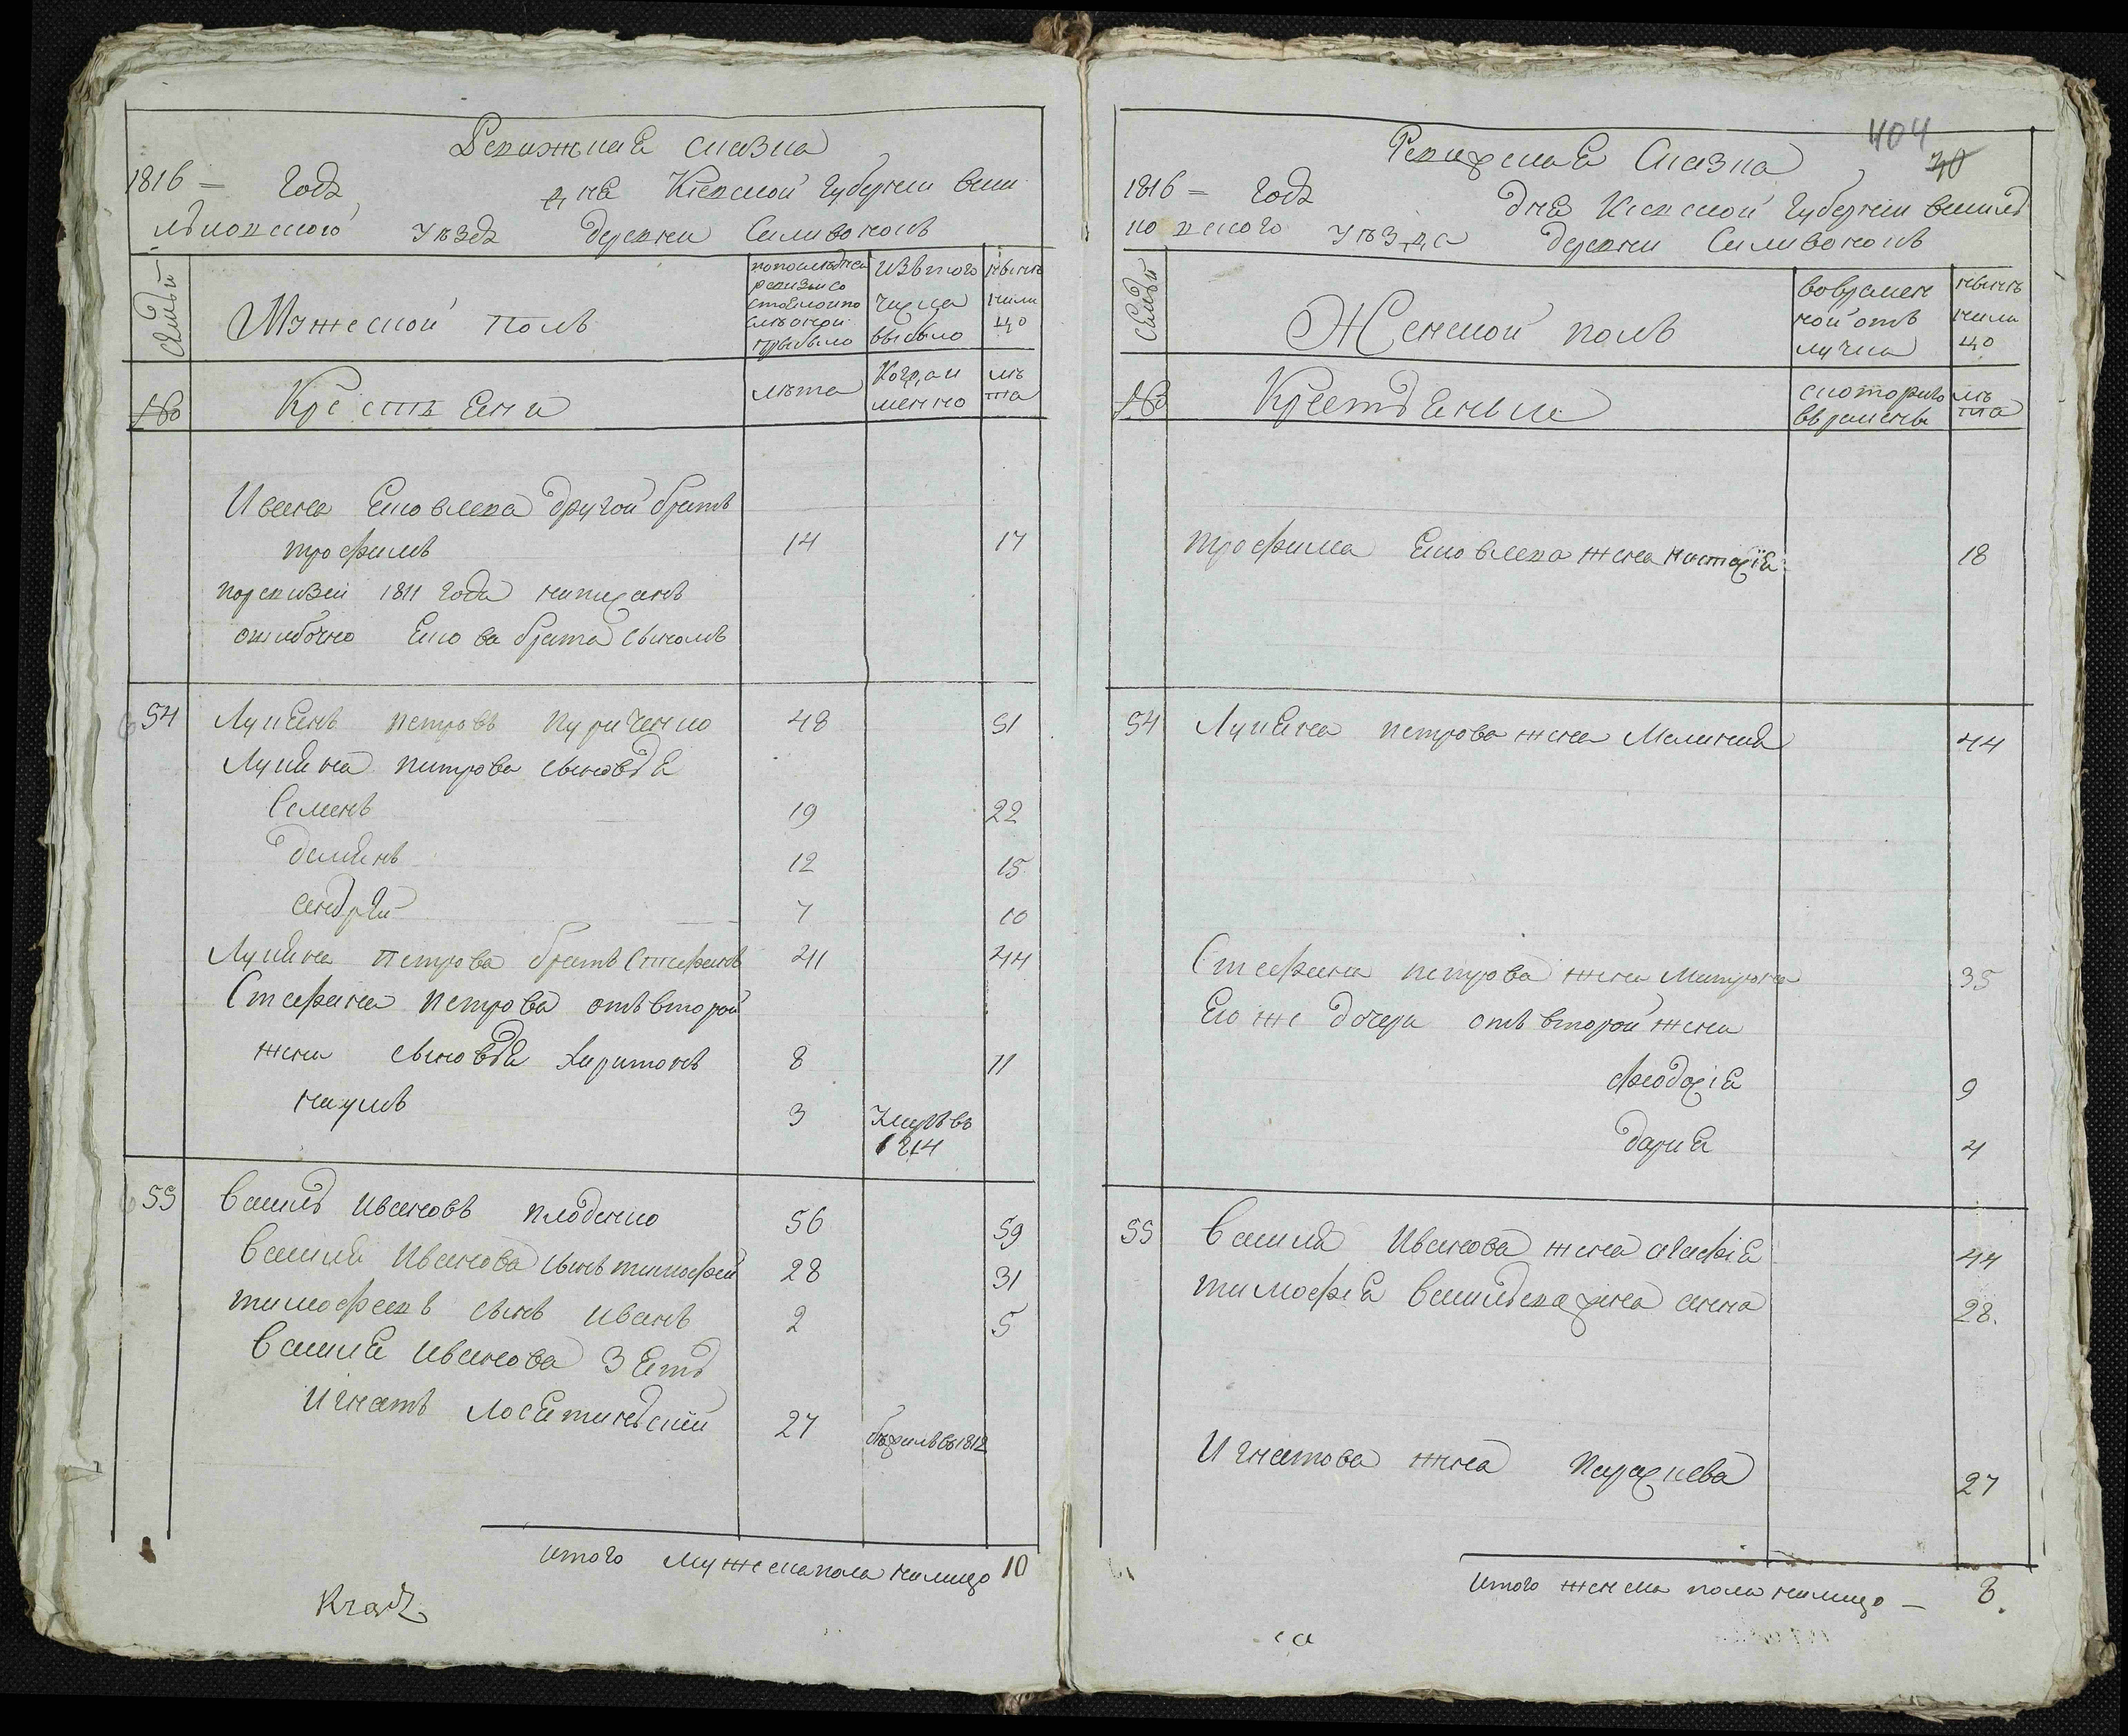 Ревижная сказка
1816 – года дня Кіевской губернии васи
льковского уезда деревни Саливонокъ
Семьи
Мужеской полъ
попоследней
ревизыи со
стояло и по
сле оной
прибыло
изътого
числа
выбыло
ныне
нали
цо
№
Крестъяни
лета
Когда и
менно
ле
та
Ивана Яковлева другой братъ
трофимъ 14 17
поревизіи 1811 года написанъ
ошибочно Якова брата сыномъ
54 Лукянъ петровъ Кириченко 48 51
Лукяна питрова сыновья
Семенъ 19 22
демянъ 12 15
андрей 7 10
Лукяна петрова братъ Стефанъ 41 44
Стефана петрова отъ второй
жени сыновья Харитонъ 8 11
наумъ 3 Умре въ
1814
55 Василь ивановъ плоденко 56 59
Василя ивановa сынъ тимофей 28 31
тимофеевъ сынъ иванъ 2 5
Василя иванова зять
Игнатъ лосятиньскій 27 бежилъ въ 1812
итого мужеска пола налицо 10
404
40
Ревизская Сказка
1816 – года дня Кіевской губернии василь
ковского уезда деревни Саливонокъ
Семьи
Женской полъ
вовремен
ной отъ
лучки
ныне
нали
цо
№
Крестьяньи
скоторого
времены
ле
та
трофима Яковлева жена настасія 18
54 Лукяна петрова жена Малания 44
Стефана петрова жена Матрона 35
Его же дочери отъ второй жени
феодосія 9
дария 4
55 Василя Иванова жена агафія 44
тимофія васильева жена анна 28.
Игнатова жена Параскева 27
итого женска пола налицо – 8.